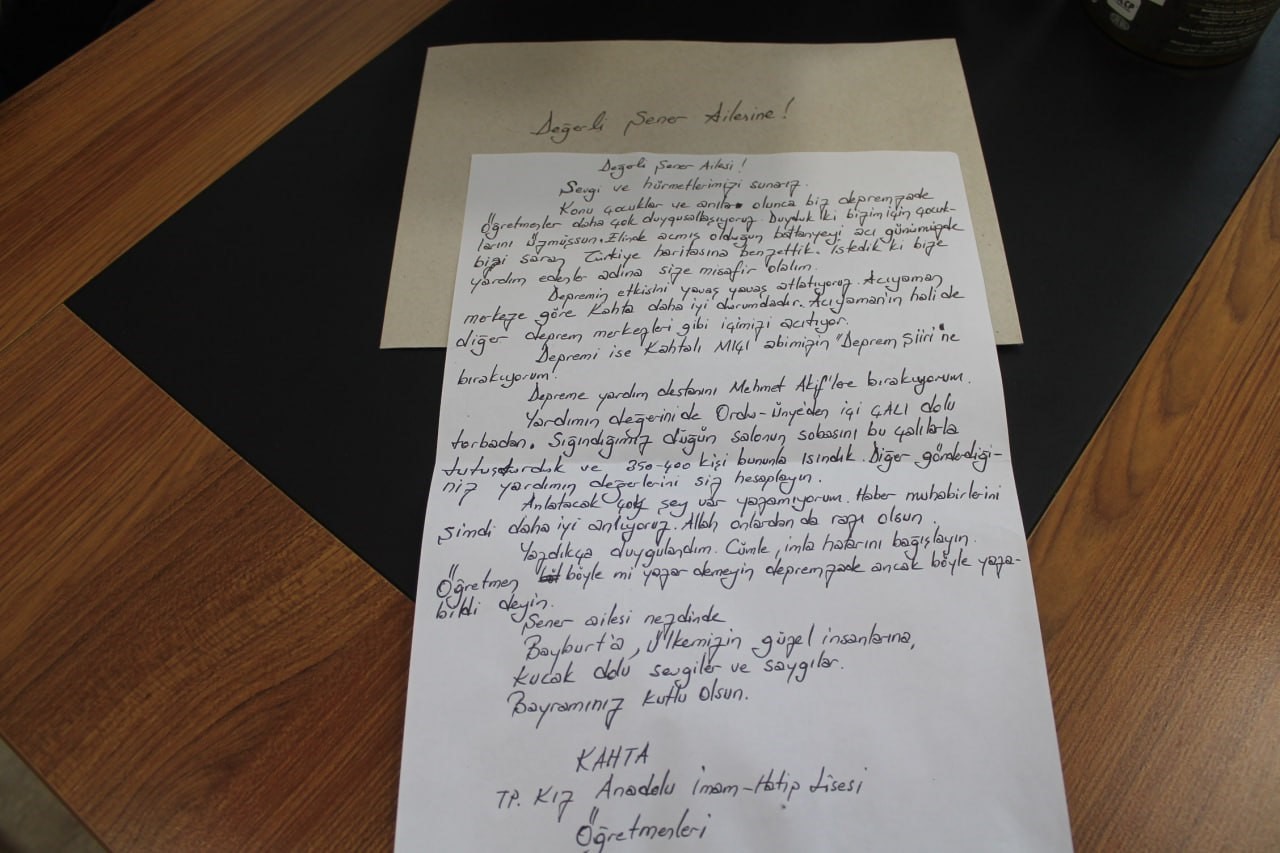 Değerli Şener Ailesine!
Değerli Şener Ailesi!
Sevgi ve hürmetlerimizi sunarız.
Konu çocuklar ve anılar olunca biz depremzede
Öğretmenler daha çok duygusallaşıyoruz. Duyduk ki bizim için çocuk-
larını üzmüşsun. Elinde açmış olduğun battaniyeyi acı günümüzde
bizi saran Türkiye haritasına benzettik. İstedik ki bize
yardım edenler adına size misafir olalım.
Depremin etkisini yavaş yavaş atlatıyoruz. Acıyaman
merkeze göre Kahta daha iyi durumdadır. Acıyaman'ın hali de
diğer deprem merkezleri gibi içimizi acıtıyor.
Depremi ise Kahtalı MIÇI abimizin "Deprem Şiiri"ne
bırakıyorum.
Depreme yardım destanını Mehmet Akif'lere bırakıyorum.
Yardımın değerini de Ordu-Ünye'den içi ÇALI dolu
torbadan. Sığındığımız düğün salonun sobasını bu çalılarla
tutuşturduk ve 350-400 kişi bununla ısındık. Diğer gönderdiği-
niz yardımın değerlerini siz hesaplayın.
Anlatacak çok şey var yazamıyorum. Haber muhabirlerini
şimdi daha iyi anlıyoruz. Allah onlardan da razı olsun.
Yazdıkça duygulandım. Cümle, imla hatarını bağışlayın.
Öğretmen böyle mi yazar demeyin depremzede ancak böyle yaza-
bildi deyin.
Şener ailesi nezdinde
Bayburt'a, Ülkemizin güzel insanlarına,
kucak dolu sevgiler ve saygılar.
Bayramınız kutlu olsun.
KAHTA
TP. Kız Anadolu İmam-Hatip Lisesi
Öğretmenleri